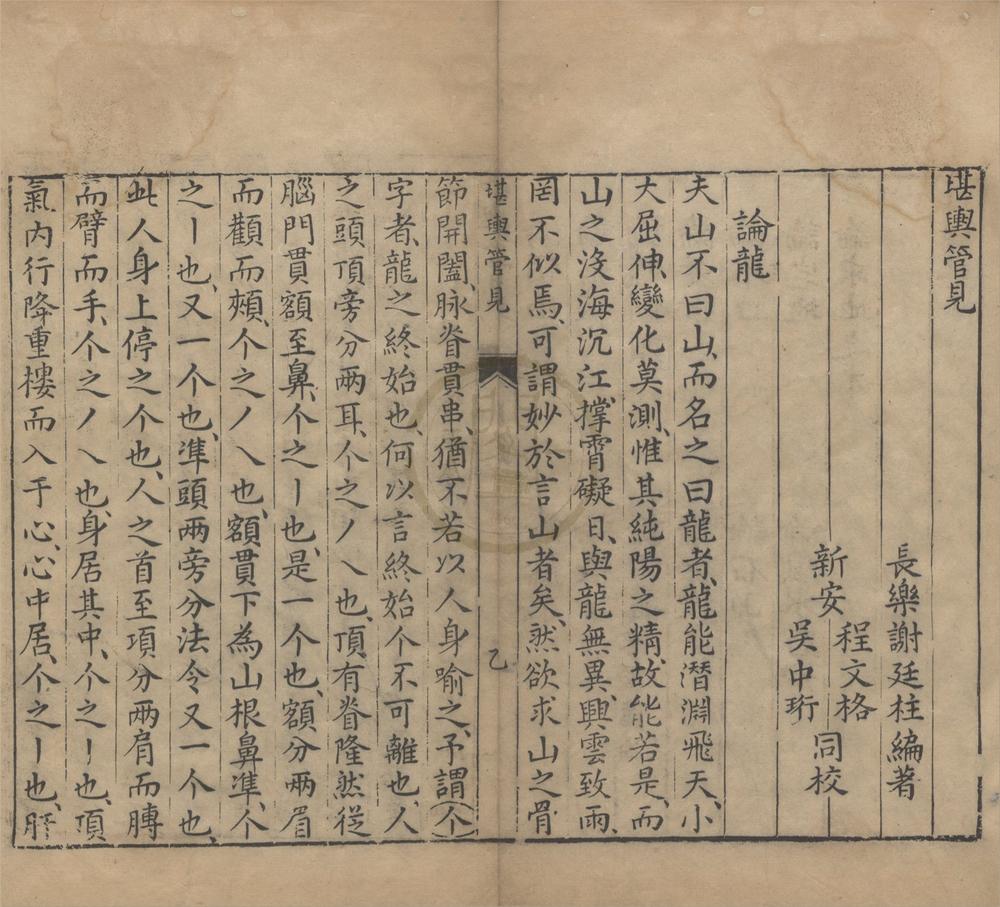 堪輿管見
長樂謝廷柱編著
新安程文格吳中珩同校
論龍
夫山不曰山、而名之曰龍者、龍能潛淵飛天、小
大屈伸、變化莫測、惟其純陽之精、故能若是、而
山之沒海沉江、撐霄礙日、與龍無異、興雲致雨、
罔不似焉、可謂妙於言山者矣、然欲求山之骨
堪輿管見
乙
節開闔、脉脊貫串、猶不若以人身喻之、予謂个
字者、龍之終始也、何以言終始个不可離也、人
之頭頂旁分兩耳、个之丿乀也、頂有脊隆然從
腦門貫額至鼻、个之丨也、是一个也、額分兩眉
而顴而頰、个之丿乀也、額貫下為山根鼻準、个
之丨也、又一个也、準頭兩旁分法令又一个也、
此人身上停之个也、人之首至項分兩肩而膊
而臂而手、个之丿乀也、身居其中、个之丨也、項
氣內行降重樓而入于心、心中居、个之丨也、肝